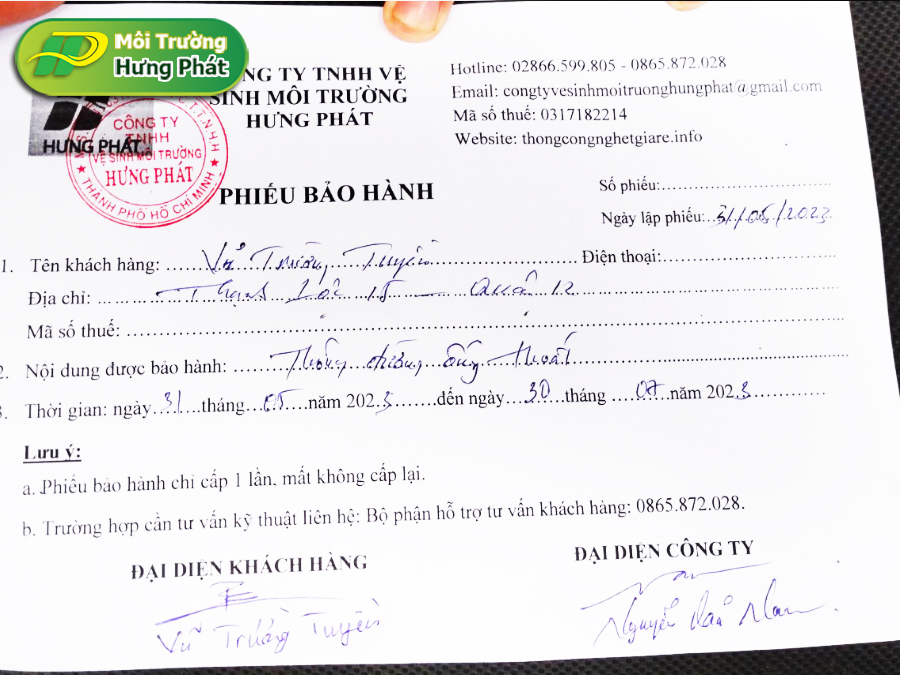 Môi Trường
Hưng Phát
HƯNG PHÁT
CÔNG TY
TNHH
VỆ SINH MÔI TRƯỜNG
HƯNG PHÁT
THÀNH PHỐ HỒ CHÍ MINH
CÔNG TY TNHH VỆ
SINH MÔI TRƯỜNG
HƯNG PHÁT
Hotline: 02866.599.805 - 0865.872.028
Email: congtyvesinhmoitruonghungphat@gmail.com
Mã số thuế: 0317182214
Website: thongcongnghetgiare.info
PHIẾU BẢO HÀNH
Số phiếu:
Ngày lập phiếu: 31/05/2023
1. Tên khách hàng: Vũ Trường Tuyên Điện thoại:
Địa chỉ: Thạnh Lộc 15 — Quận 12
Mã số thuế:
2. Nội dung được bảo hành: Thông đường ống thoát
3. Thời gian: ngày 31 tháng 05 năm 2023 đến ngày 30 tháng 07 năm 2023
Lưu ý:
a. Phiếu bảo hành chỉ cấp 1 lần, mất không cấp lại.
b. Trường hợp cần tư vấn kỹ thuật liên hệ: Bộ phận hỗ trợ tư vấn khách hàng: 0865.872.028.
ĐẠI DIỆN KHÁCH HÀNG
ĐẠI DIỆN CÔNG TY
Vũ Trường Tuyên
Nguyễn Nam